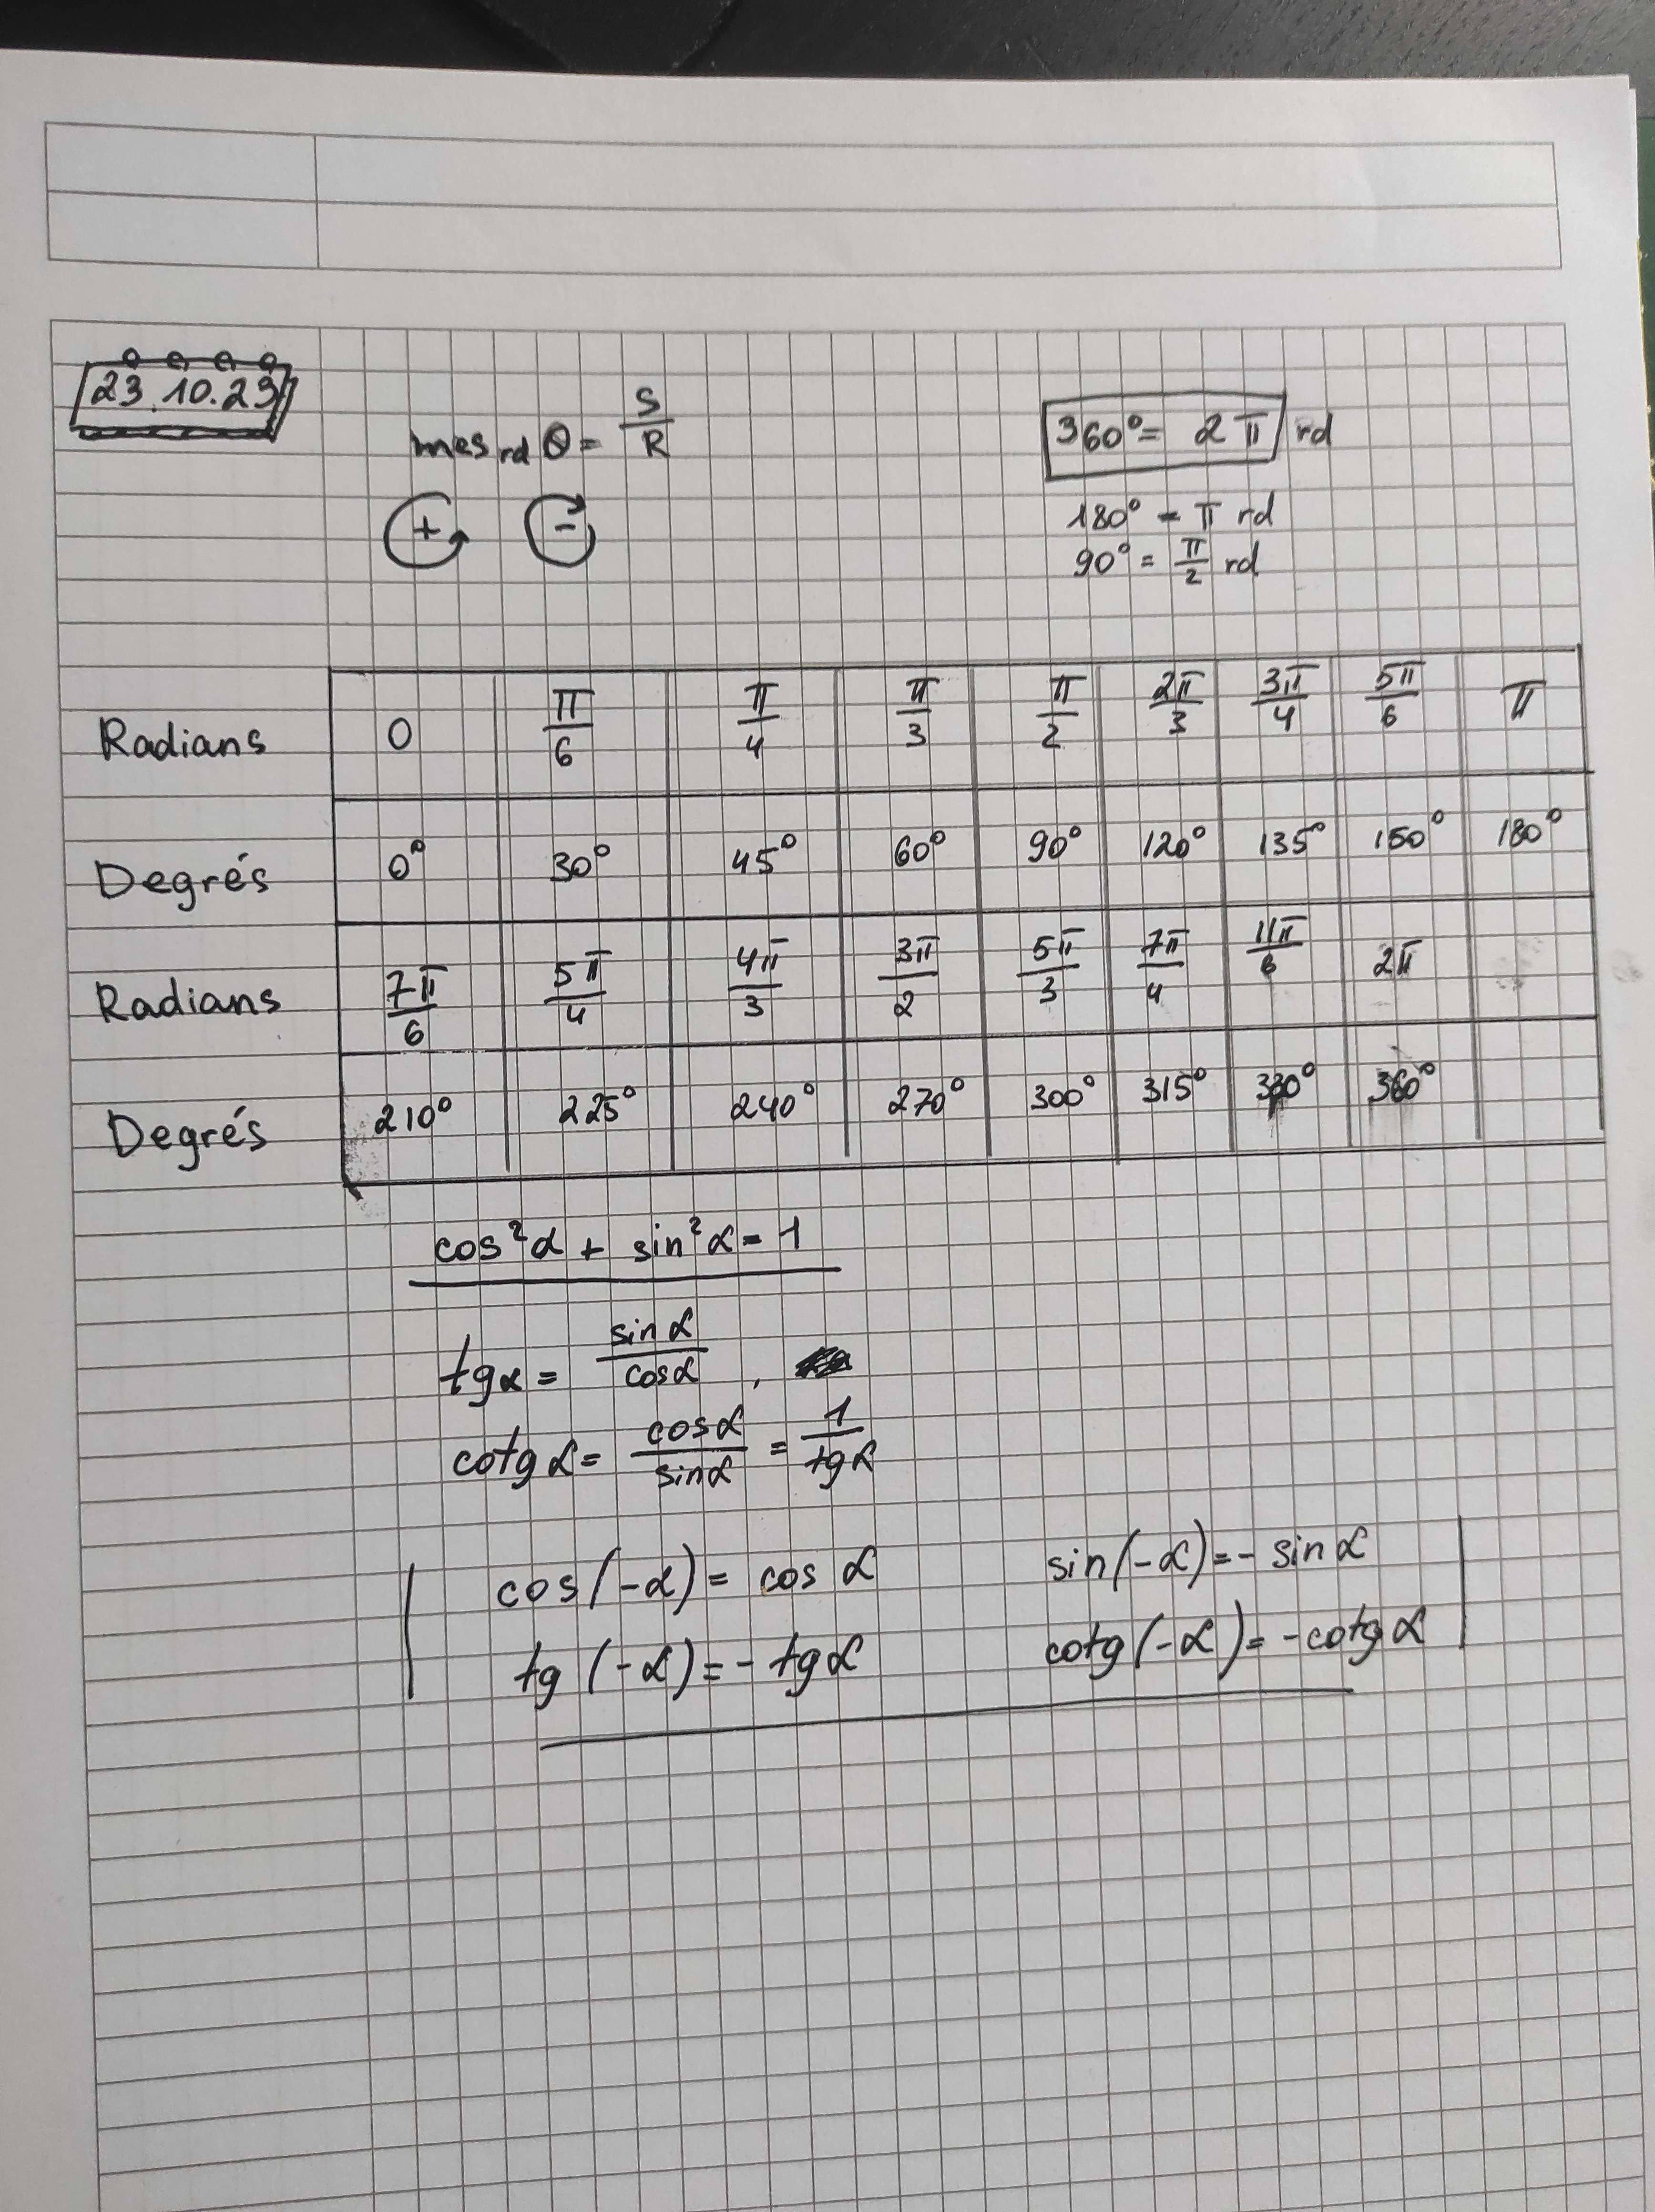 23.10.23
mes rd θ = S/R
360° = 2π rd
+ -
180° = π rd
90° = π/2 rd
Radians 0 π/6 π/4 π/3 π/2 2π/3 3π/4 5π/6 π
Degrés 0° 30° 45° 60° 90° 120° 135° 150° 180°
Radians 7π/6 5π/4 4π/3 3π/2 5π/3 7π/4 11π/6 2π
Degrés 210° 225° 240° 270° 300° 315° 330° 360°
cos²α + sin²α = 1
tg α = sin α/cos α ,
cotg α = cos α/sin α = 1/tg α
cos(-α) = cos α sin(-α) = - sin α
tg(-α) = - tg α cotg(-α) = - cotg α